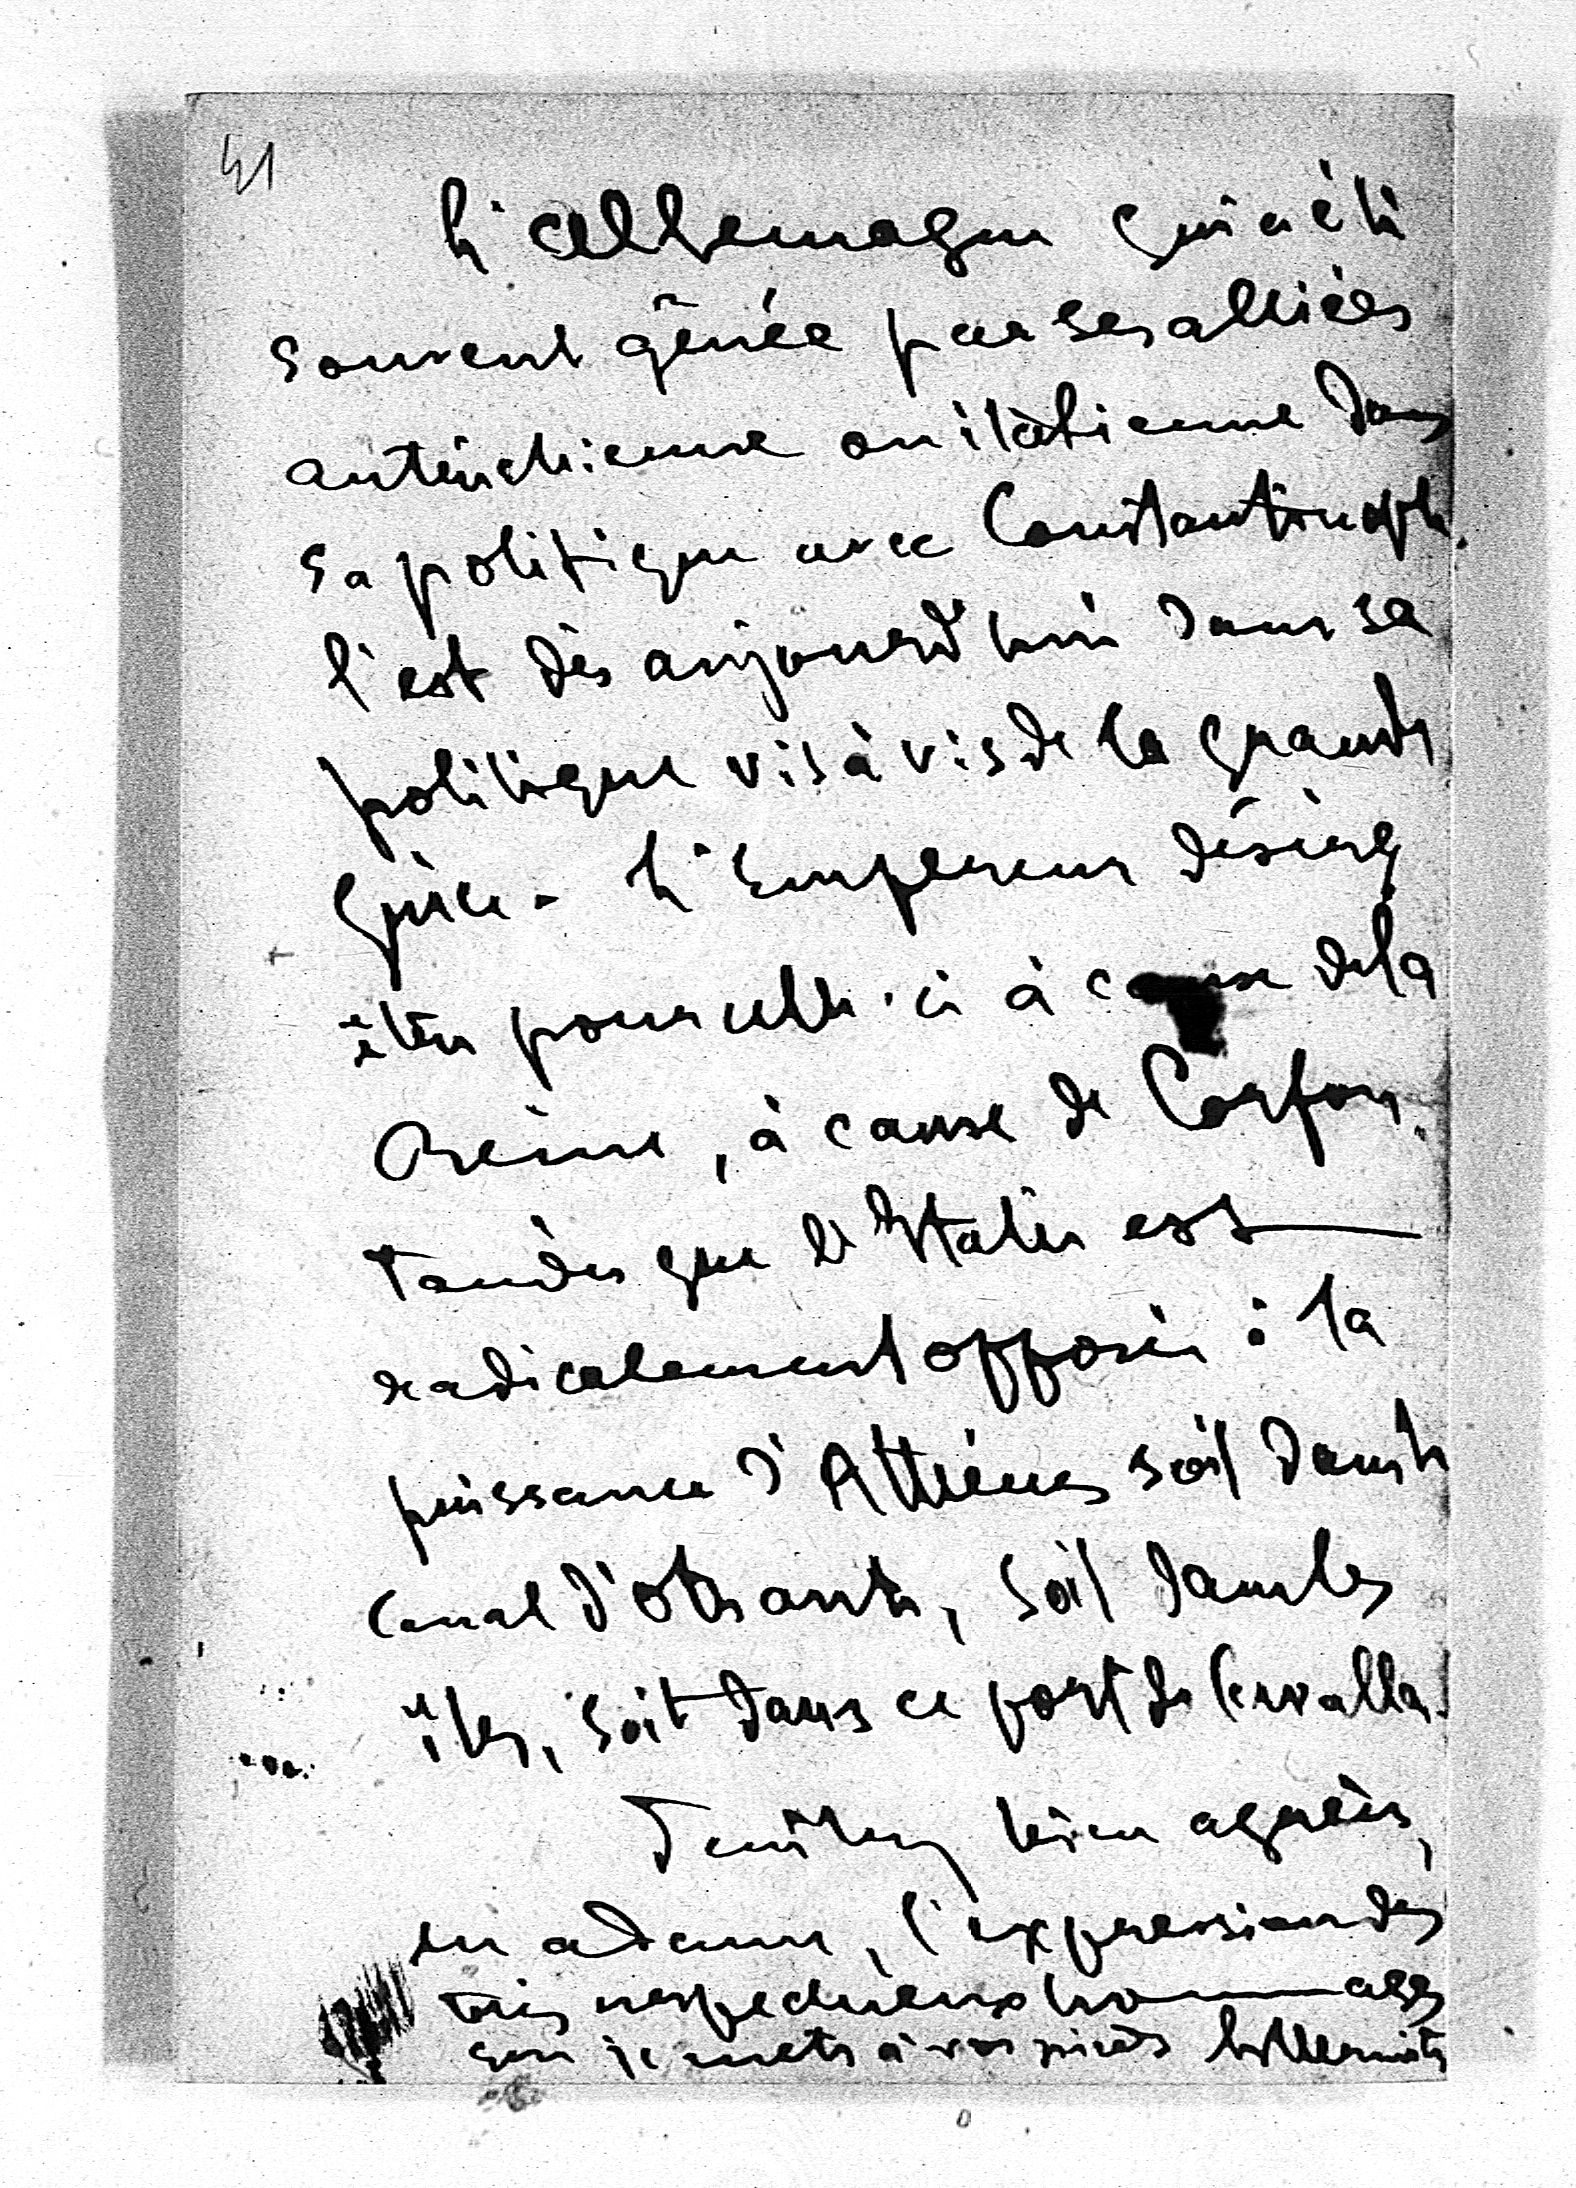 41
L'Allemagne qui a été
souvent gênée par ses alliées
autrichienne ou italienne dans
sa politique avec Constantinople
l'est dès aujourd'hui dans sa
politique vis à vis de la grande
Grèce. L'Empereur désire
être pour celle-ci à cause de la
Reine, à cause de Corfou,
tandis que l'Italie est
radicalement opposée à la
puissance d'Athènes soit dans le
canal d'Otrante, soit dans les
îles, soit dans ce port de Cavalla.
Veuillez bien agréer,
Madame, l'expression des
très respectueux hommages
que je mets à vos pieds